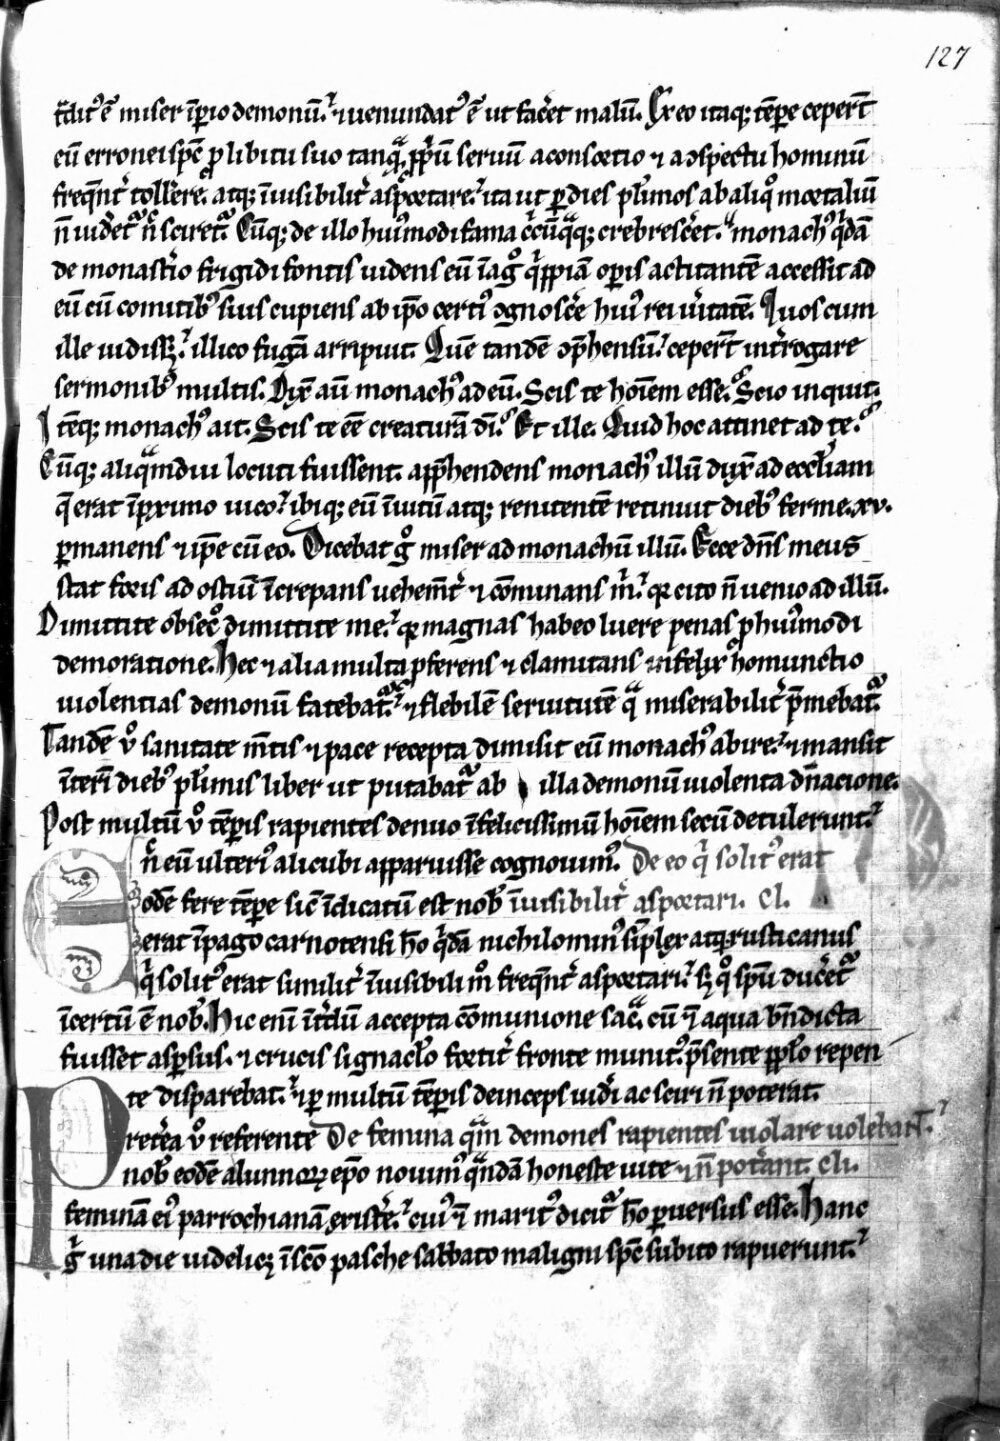 127
t̃dit᷒ ẽ miser ĩpio demonũ. ⁊ uenundat᷒ ẽ ut fac̃et malũ. Ex eo itaq; tẽpe ceper̃t
eũ erronei sp̃c ꝓ libitu suo tanq̃ ꝓp̃ũ seruũ a consortio ⁊ aspectu hominũ
freq̃nt̃ toll̃e. atq; ĩuisibilit̃ asportare. ita ut ꝑ dies pl̃imos ab aliq̊ mortaliũ
ñ uidet̃ ñ sciret̃. Cũq; de illo hui᷒modi fama c̃cũq̃q; crebresc̃et. monach᷒ q̃dã
de monast̃io frigidi fontis uidens eũ ĩ ag̊ actitantẽ accessit ad
eũ cũ comitib᷒ suis cupiens ab ip̃o certi᷒ ꝯgnosc̃e hui᷒ rei ũitatẽ. Quos cum
ille uidiss&. illico fugã arripuit. Quẽ tandẽ ꝯp̃hensũ. ceper̃t int̃rogare
sermonib᷒ multis. Dix̃ aũ monach᷒ ad eũ. Scis te hoĩem esse. Scio inquit.
Itẽq; monach᷒ ait. Scis te eẽ creaturã dĩ. Et ille. Quid hoc attinet ad te.
Cũq; aliq̃mdiu locuti fuissent. app̃hendens monach᷒ illũ dux̃ ad eccl̃iam
q̃ erat ĩ ꝓximo uico. ibiq; eũ ĩuitũ atq; renitentẽ retinuit dieb᷒ ferme .xv.
ꝑmanens ⁊ ip̃e cũ eo. Dicebat g̊ miser ad monachũ illũ. Ecce dñs meus
stat foris ad ostiũ ĩcrepans uehem̃t̃ ⁊ cõminans m̃. q̃ cito ñ uenio ad illũ.
Dimittite obsec̊ dimittite me. q̃ magnas habeo luere penas ꝓ hui᷒modi
demoratione. Hec ⁊ alia multa ꝓferens ⁊ clamitans infelix homunctio
uiolentias demonũ fatebat̃. ⁊ flebilẽ seruitutẽ q̃ miserabilit̃ p̃mebat̃.
Tandẽ ũ sanitate m̃tis ⁊ pace recepta dimisit eũ monach᷒ abire. ⁊ mansit
ĩterĩ dieb᷒ pl̃imis liber ut putabat̃ ab illa demonũ uiolenta dñacione.
Post multũ ũ tẽpis rapientes denuo ĩfelicissimũ hoĩem secũ detulerunt.
ñ eũ ulteri᷒ alicubi apparuisse cognouim᷒. De eo q̃ solit᷒ erat
Eodẽ fere tẽpe sic̃ ĩdicatũ est nob᷒ ĩuisibilit̃ asportari. cl.
erat ĩ pago carnotensi hõ q̃dã nichilomin᷒ simplex atq; rusticanus
q̃ solit᷒ erat similit̃ ĩuisibili m̊ freq̃nt̃ asportari. s; q̊ sp̃u duc̃et̃
ĩcertũ ẽ nob᷒. Hic enĩ ĩt̃dũ accepta cõmunione sac̃. cũ ⁊ aqua bñdicta
fuisset aspersus. ⁊ crucis signac̃lo fortit̃ fronte munit᷒. p̃sente pp̃lo repen
te disparebat. ⁊ ꝑ multũ tẽpis deinceps uid̃i ac sciri ñ poterat.
Pret̃ea ũ referente De femina q̃m demones rapientes uiolare uolebant.
nob᷒ eodẽ alunnorꝫ ep̃o nouim᷒ q̃ndã honeste uite ⁊ ñ pot̃ant. cli.
feminã ei᷒ parrochianã exist̃e. cui᷒ ⁊ marit᷒ dicit̃ hõ ꝑuersus esse. Hanc
g̊ una die uidelic& ĩ sc̃o pasche sabbato maligni sp̃c subito rapuerunt.